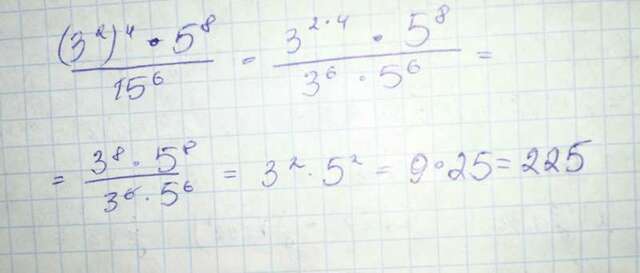 (3²)⁴ · 5⁸ / 15⁶ = 3²·⁴ · 5⁸ / 3⁶ · 5⁶ =
= 3⁸ · 5⁸ / 3⁶ · 5⁶ = 3² · 5² = 9 · 25 = 225